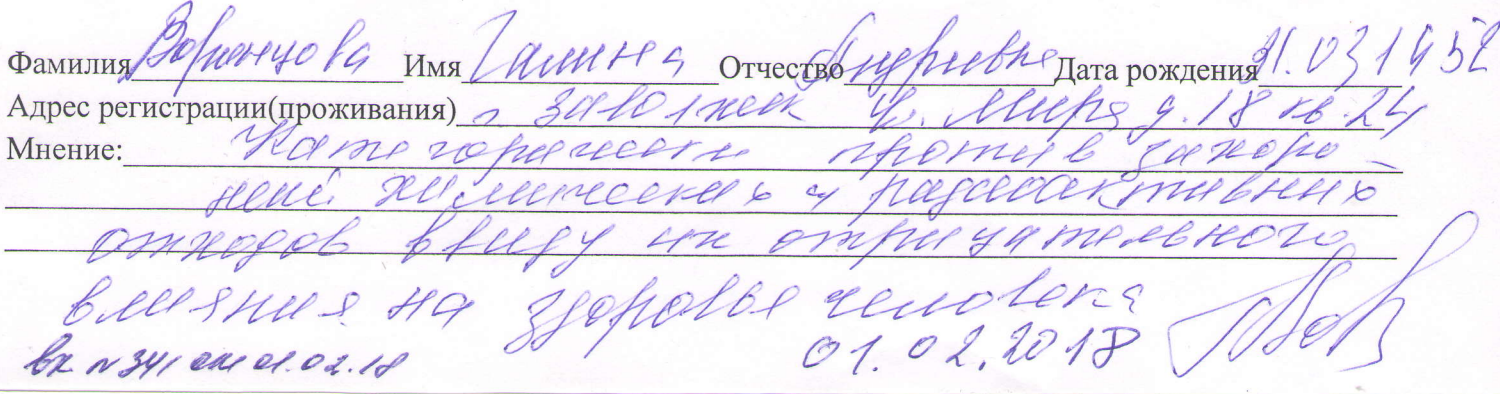 Фамилия Воронцова Имя Галина Отчество Андреевна Дата рождения 31.03.1952
Адрес регистрации(проживания) г. Заволжск ул. Мира д. 18 кв. 24
Мнение: Категорически против захоро-
нений химических и радиоактивных
отходов ввиду их отрицательного
влияния на здоровье человека
вх №341 от 01.02.18 01.02.2018